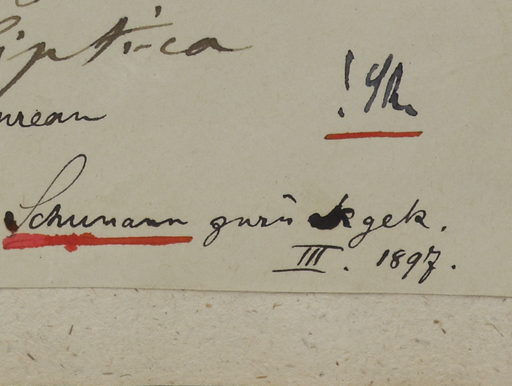 iptica
! Sch.
urean
Schumann zurückgek.
III. 1897.